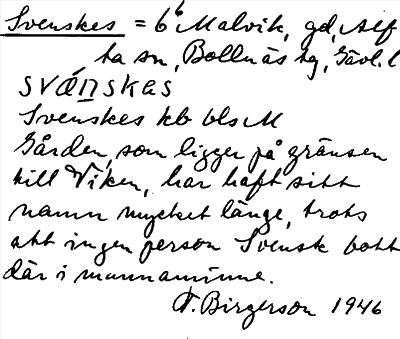 Svenskes = 6⁶ Malvik, gd, Alf
ta sn, Bollnäs tg, Gävl. l
svánskas
Svenskes kb bls M
Gården, som ligger på gränsen
till Viken, har haft sitt
namn mycket länge, trots
att ingen person Svensk bott
där i mannaminne.
F. Birgerson 1946